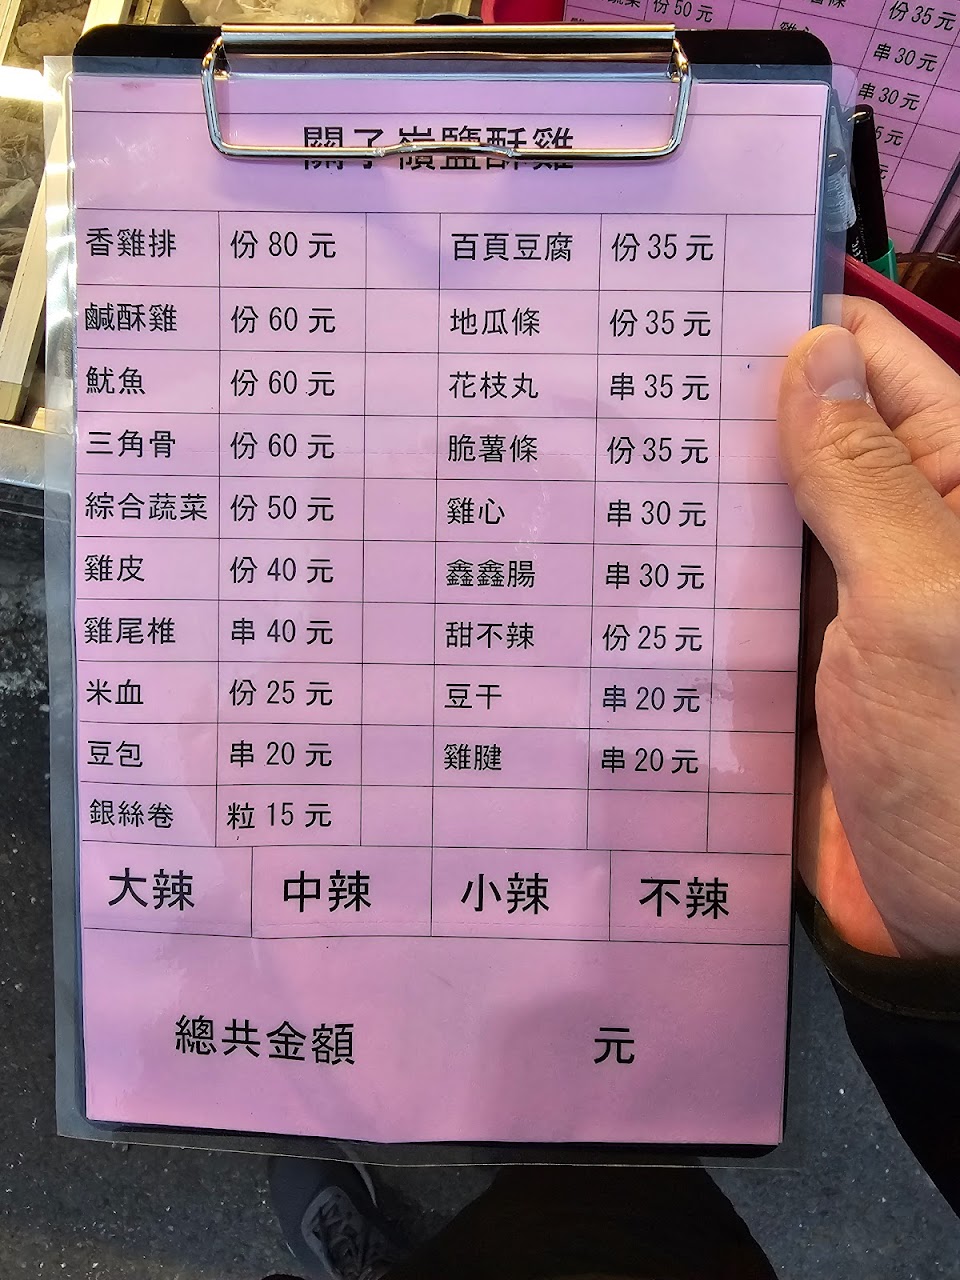 關子嶺鹽酥雞
香雞排 份80元 百頁豆腐 份35元
鹹酥雞 份60元 地瓜條 份35元
魷魚 份60元 花枝丸 串35元
三角骨 份60元 脆薯條 份35元
綜合蔬菜 份50元 雞心 串30元
雞皮 份40元 鑫鑫腸 串30元
雞尾椎 串40元 甜不辣 份25元
米血 份25元 豆干 串20元
豆包 串20元 雞腱 串20元
銀絲卷 粒15元
大辣 中辣 小辣 不辣
總共金額 元
份50元 份35元
串30元
串30元